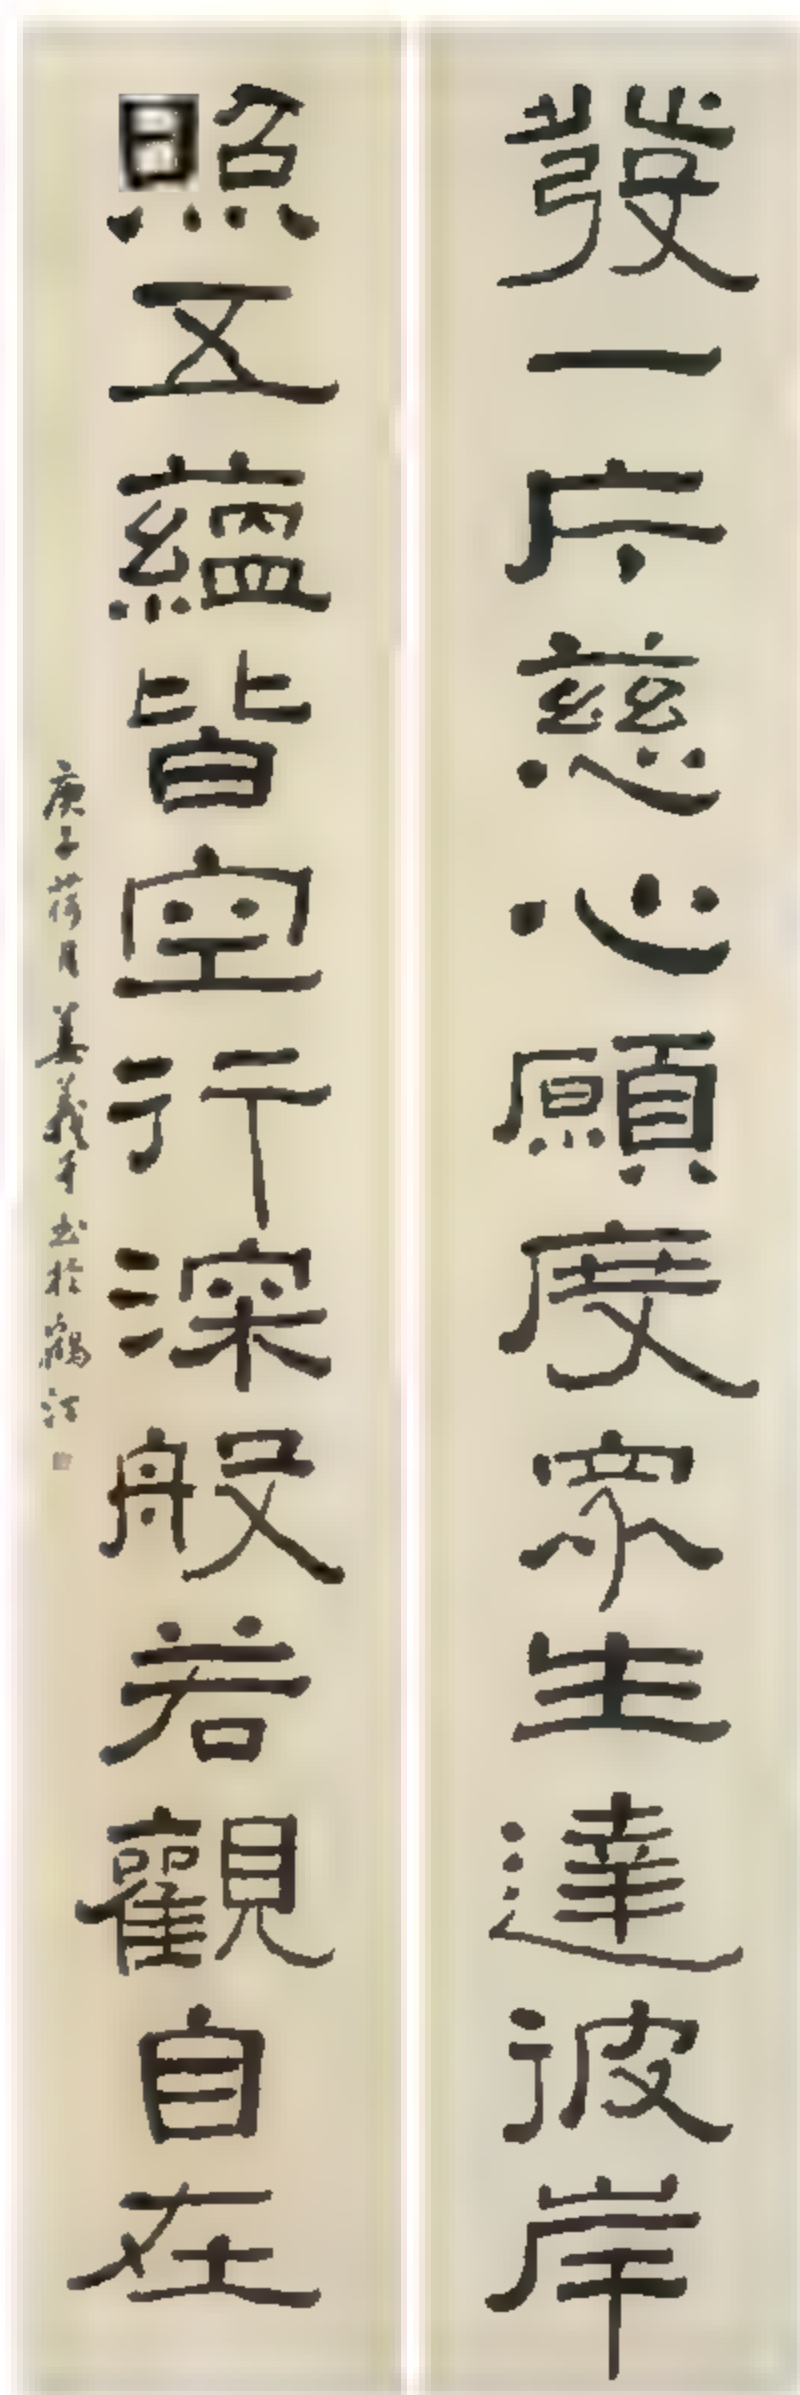 發一片慈心願度眾生達彼岸
照五蘊皆空行深般若觀自在
庚子荷月姜義平書於鶴江